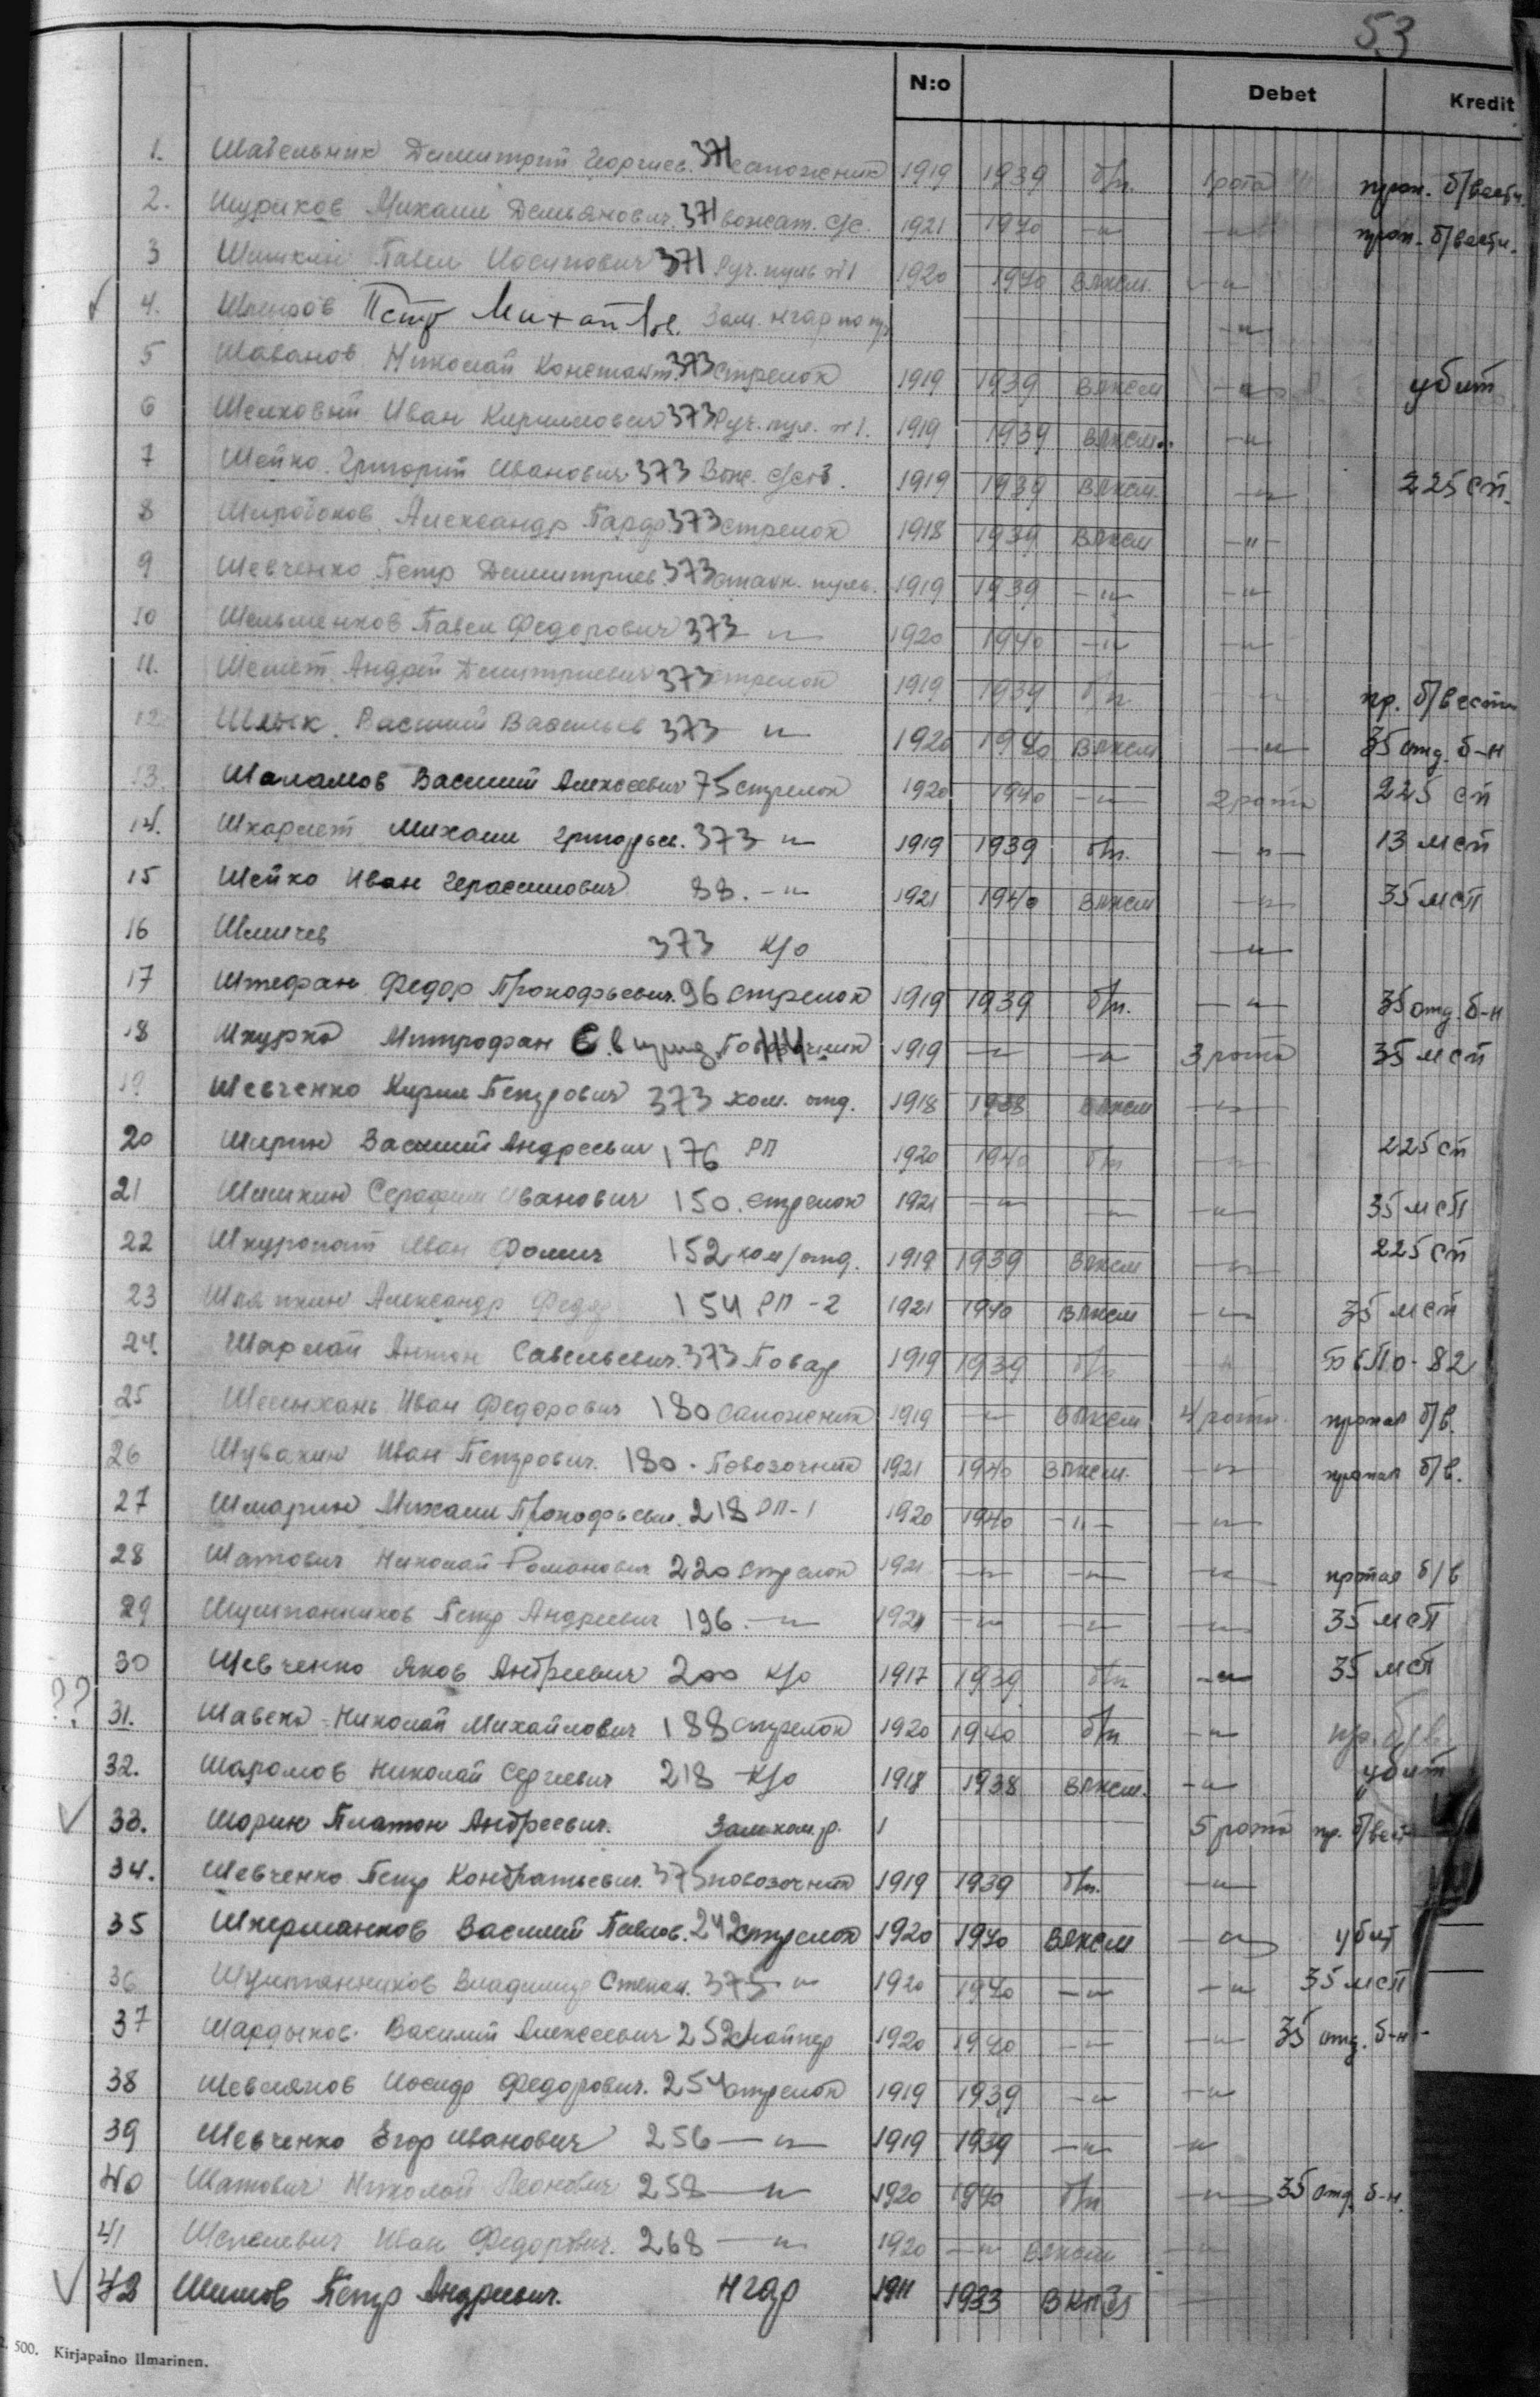 53
N:o Debet Kredit
1. Шабельник Димитрий Георгиев. 371 сапожник 1919 1939 б/п. 1 рота проп. б/вести.
2. Шуриков Михаил Демьянович. 371 вожат. с/с. 1921 1940 -"- -"- проп. б/вести.
3 Шишкин Павел Иосипович 371 Руч. пуль №1 1920 1940 ВЛКСМ. -"-
4. Петр Зам. -"-
5 Шаванов Николай Констант. 373 стрелок 1919 1939 ВЛКСМ -"- убит
6 Шелковый Иван Кириллович 373 Руч. пул. №1. 1919 1939 ВЛКСМ. -"-
7 Шейко Григорий Иванович 373 Вож. 1919 1939 ВЛКСМ. -"- 225 сп.
8 Широбоков Александр 373 стрелок 1918 1939 ВЛКСМ -"-
9 Шевченко Петр Димитриев. 373 станк. пуль. 1919 1939 -"- -"-
10 Шельменков Павел Федорович 373 -"- 1920 1940 -"- -"-
11. Шемет Андрей Димитриевич 373 стрелок 1919 1939 б/п -"- пр. б/вести
12. Шлык Василий Васильев 373 -"- 1920 1940 ВЛКСМ -"- 35 отд. б-н
13. Шаламов Василий Алексеевич 75 стрелок 1920 1940 -"- 2 рота 225 сп
14. Шкарлет Михаил Григорьев. 373 -"- 1919 1939 б/п. -"- 13 мсп
15 Шейко Иван Герасимович 88. -"- 1921 1940 ВЛКСМ -"- 35 мсп
16 373 к/о -"-
17 Штефан Федор Прокофьевич. 96 стрелок 1919 1939 б/п. -"- 35 отд. б-н
18 Шкурко Митрофан Повозочник 1919 -"- -"- 3 рота 35 мсп
19. Шевченко Кирил Петрович 373 ком. отд. 1918 1938 ВЛКСМ -"-
20 Василий Андреевич 176 РП 1920 1940 б/п -"- 225 сп
21 Шишкин Серафим Иванович 150. стрелок 1921 -"- -"- -"- 35 мсп
22 Шкуропат Иван Фомич 152 ком/отд. 1919 1939 ВЛКСМ -"- 225 сп
23 Шляпкин Александр Федор 154 РП-2 1921 1940 ВЛКСМ -"- 35 мсп
24. Шарлай Антон Савельевич. 373 Повар 1919 1939 б/п -"-
25 Иван Федорович 180 сапожник 1919 -"- ВЛКСМ 4 рота. пропал б/в.
26 Шувакин Иван Петрович. 180. Повозочник 1921 1940 ВЛКСМ. -"- пропал б/в.
27 Шмарин Михаил Прокофьевич. 218 РП-1 1920 1940 -"- -"-
28 Шатович Николай Романович 220 стрелок 1921 -"- -"- -"- пропал б/в
29 Шуштанников Петр Андреевич 196. -"- 1921 -"- -"- -"- 35 мсп
30 Шевченко Яков Андреевич 200 к/о 1917 1939 б/п -"- 35 мсп
?? 31. Шавеко Николай Михайлович 188 стрелок 1920 1940 б/п -"- пр. б/в
32. Шаромов Николай Сергеевич 218 к/о 1918 1938 ВЛКСМ. -"- убит
33. Шорин Платон Андреевич. Зам ком. р. 5 рота пр. б/вест
34. Шевченко Петр Кондратьевич. 375 повозочник 1919 1939 б/п. -"-
35 Шкерманков Василий Павлов. 242 стрелок 1920 1940 ВЛКСМ -"- убит
36 Шуштанников Владимир Степан. 375 -"- 1920 1940 -"- -"- 35 мсп
37 Шардыков Василий Алексеевич 252 снайпер 1920 1940 -"- -"- 35 отд. б-н
38 Иосиф Федорович. 254 стрелок 1919 1939 -"- -"-
39 Шевченко Егор Иванович 256 -"- 1919 1939 -"- -"-
40 Шатович Николай 258 -"- 1920 1940 б/п -"- 35 отд. б-н.
41 Иван Федорович. 268 -"- 1920 -"- ВЛКСМ -"-
42 Петр Андреевич. 1911 1933 ВКП(б)
500. Kirjapaino Ilmarinen.